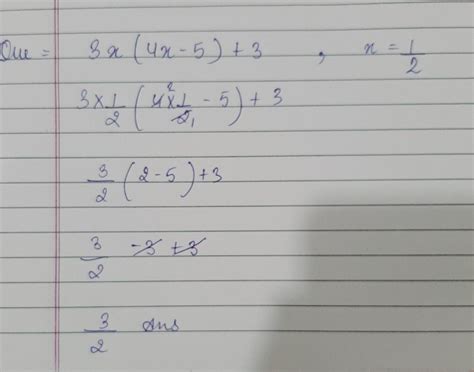 Que = 3x (4x-5) + 3 , x = 1/2
3×1/2 (4²×1/2₁ - 5) + 3
3/2 (2-5) +3
3/2 -3 +3
3/2 ans